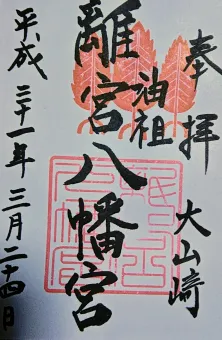 奉拝
大山崎
油祖
離宮八幡宮
平成二十一年三月二十四日